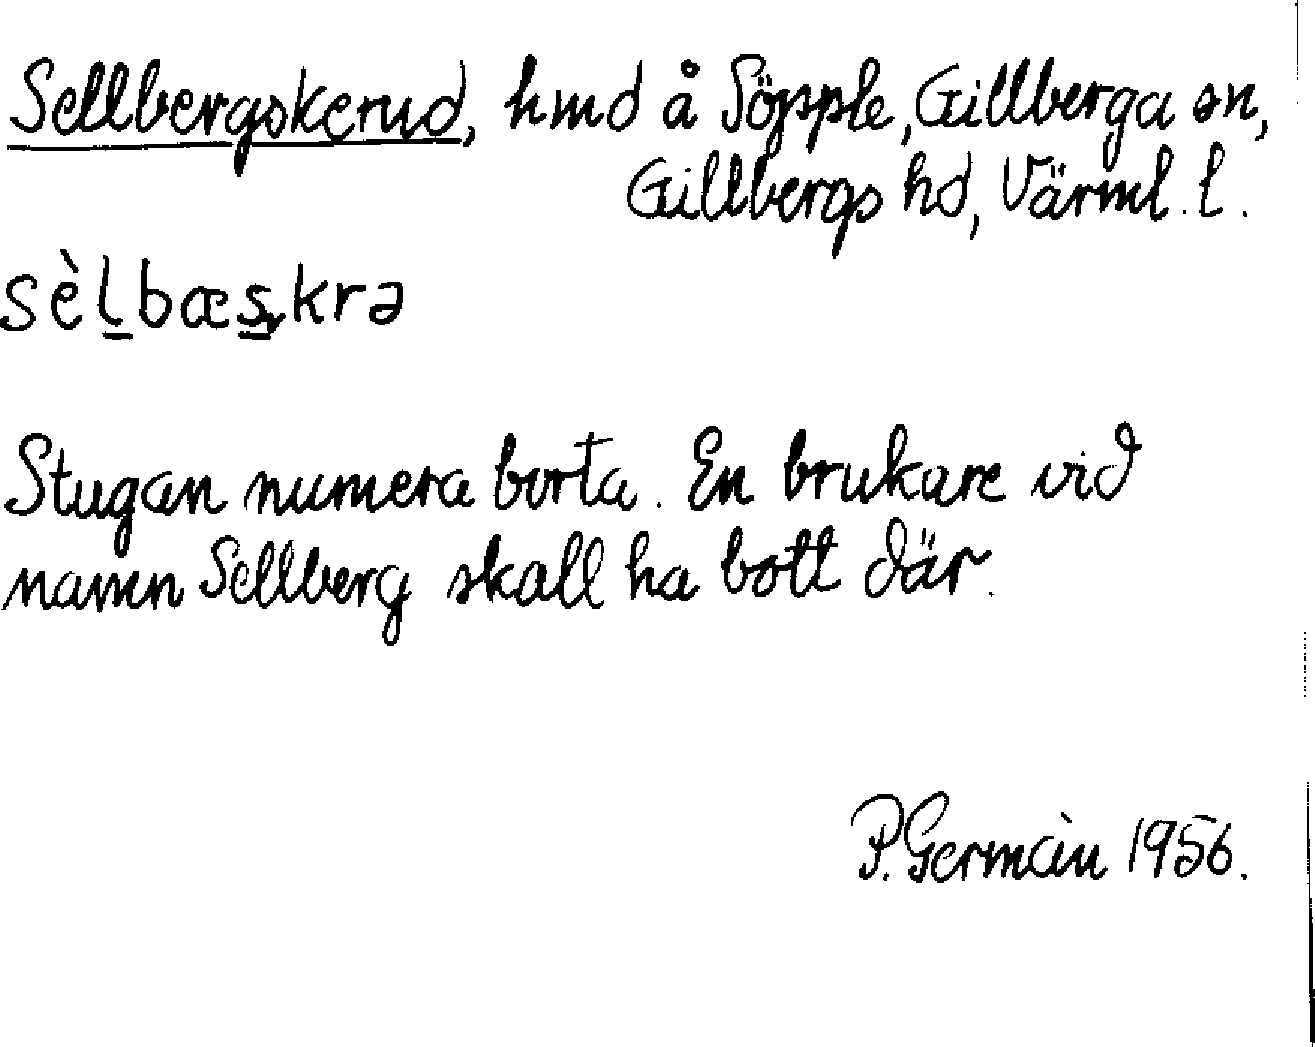 Sellbergskerud, hmd å Söpple, Gillberga sn,
Gillbergs hd, Värml. l.
sèl̲bæs̲krə
Stugan numera borta. En brukare vid
namn Sellberg skall ha bott där.
P. Germàin 1956.